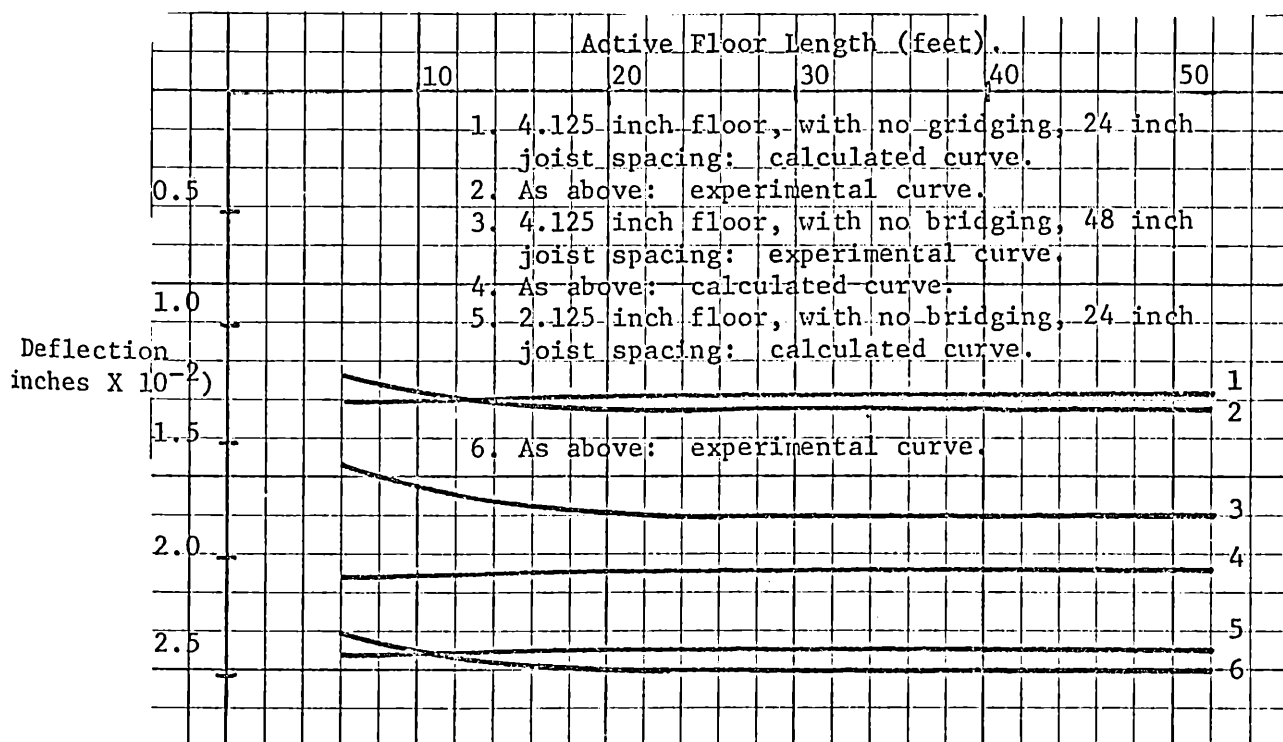 Active Floor Length (feet).
10 20 30 40 50
1. 4.125 inch floor, with no gridging, 24 inch
joist spacing: calculated curve.
0.5
2. As above: experimental curve.
3. 4.125 inch floor, with no bridging, 48 inch
joist spacing: experimental curve.
4. As above: calculated curve.
1.0
5. 2.125 inch floor, with no bridging, 24 inch
joist spacing: calculated curve.
Deflection
inches X 10-2)
1
2
1.5
6. As above: experimental curve.
3
2.0
4
5
2.5
6